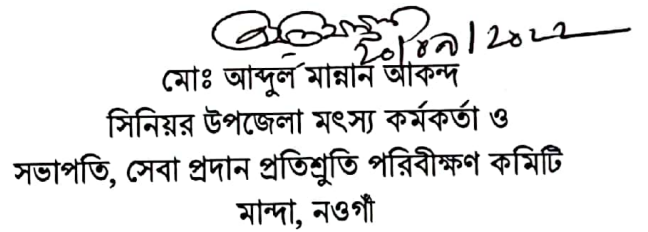 মোঃ আব্দুল মান্নান আকন্দ
সিনিয়র উপজেলা মৎস্য কর্মকর্তা ও
সভাপতি, সেবা প্রদান প্রতিশ্রুতি পরিবীক্ষণ কমিটি
মান্দা, নওগাঁ